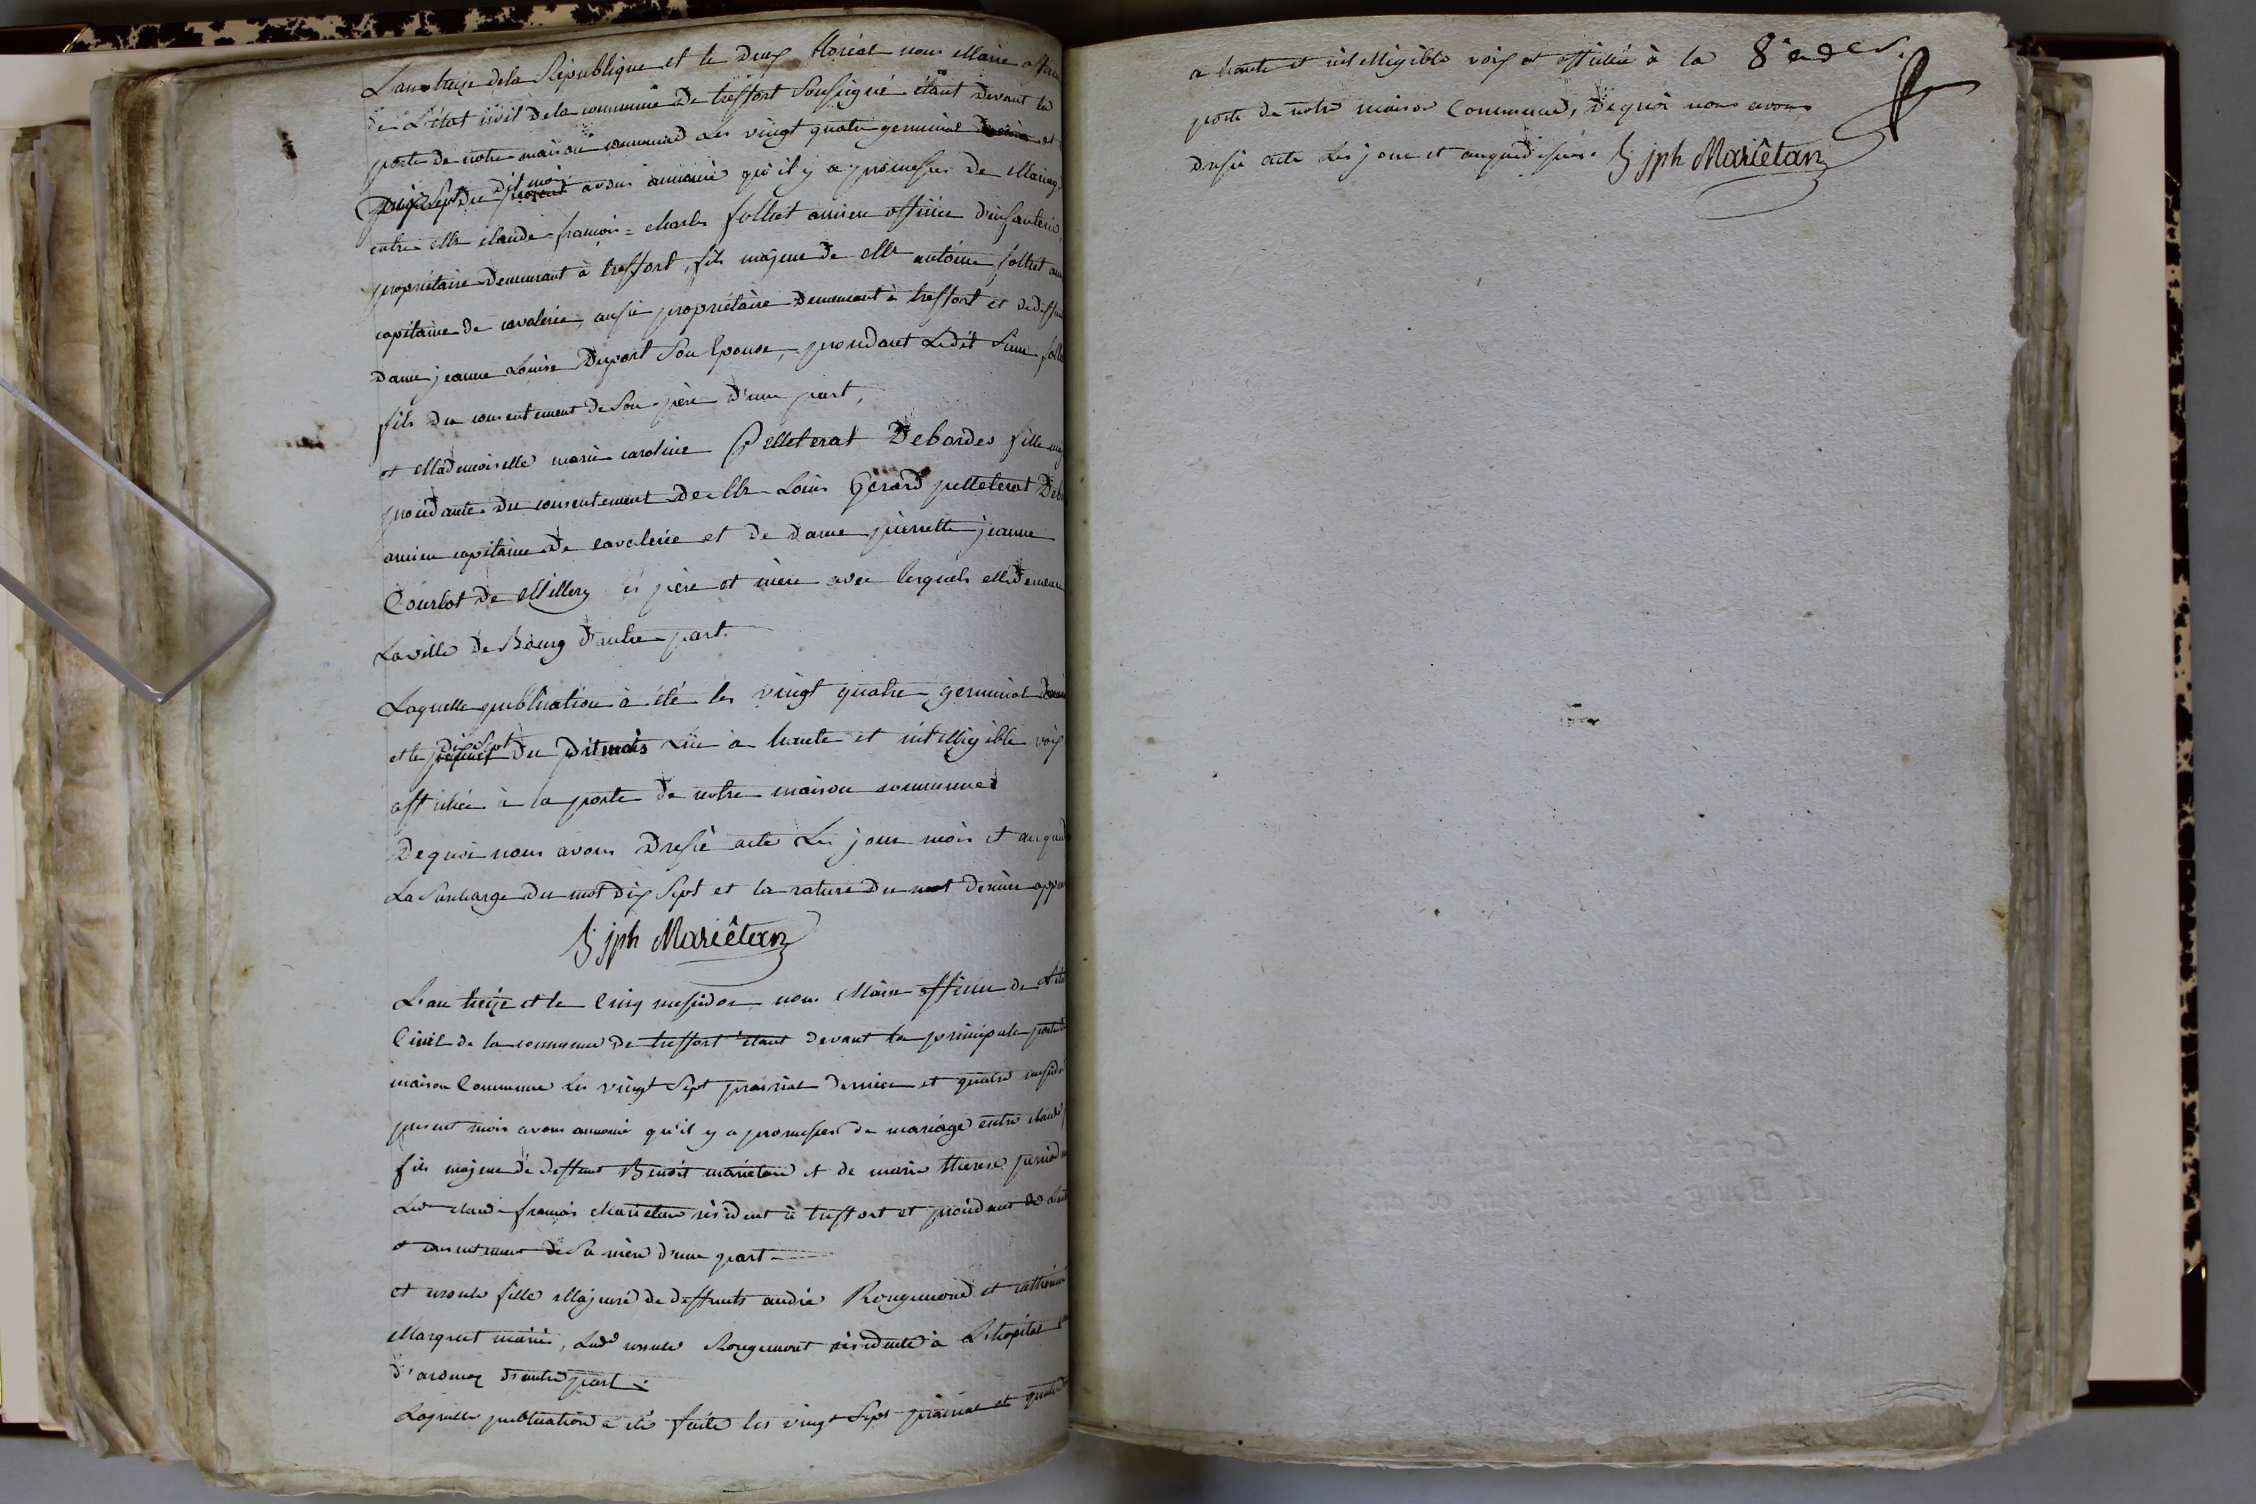 L'an treize de la République et le deux floréal nous Maire offici
de L'état civil de la commune de treffort Soussigné étant devant la
porte de notre maison commune les vingt quatre germinal dernier et
dix Sept du dit mois avons annoncé qu'il y a promesses de Mariag
entre Mr claude françois = charles folliet ancien officier d'infanterie,
propriétaire demeurant à treffort, fils majeur de Mr antoine folliet an
capitaine de cavalerie, aussi propriétaire demeurant à treffort et de deffun
dame jeanne Louise Duport Son Epouse, = procédant Ledit Sieur foll
fils du consentement de Son père d'une part,
et Mademoiselle marie caroline Pelleterat Debordes fille maj
procédante du consentement de Mr Louis Gerard pelleterat Deb
ancien capitaine de cavalerie et de dame pierrette jeanne
Courlot de Millery ses père et mère avec lesquels elle demeure
La ville de Bourg d'autre part.
Laquelle publication à été les vingt quatre germinal dernier
et le dix Sept du dit mois Lüe à haute et intelligible voix
affichée à la porte de notre maison commune
De quoi nous avons dressé acte Les jour mois et an que d
La Surcharge du mot dix Sept et la rature du mot dernier appr
jph Mariêtan
L'an treize et le Cinq messidor nous Maire officier de l'éta
Civil de la commune de treffort étant devant la principale porte de
maison Commune les vingt Sept prairial dernier et quatre messido
présent mois avons annoncé qu'il y a promesses de mariage entre claude f
fils majeur de deffunt Benoit mariétan et de marie therese
Led claude françois Mariétan résident à treffort et procédant de
et consentement de Sa mère d'une part
et ursule fille Majeure de deffunts andré Rougemond et cathérine
Marquet mariés, Lad ursule Rougemont résidente à L'hopital
d'autre part.
Laquelle publication a été faite les vingt Sept prairial et quatre
a haute et intelligible voix et affichée à la 8e et der
porte de notre maison Commune, de quoi nous avons
dressé acte Les jour et an que dessus. jph Mariêtan